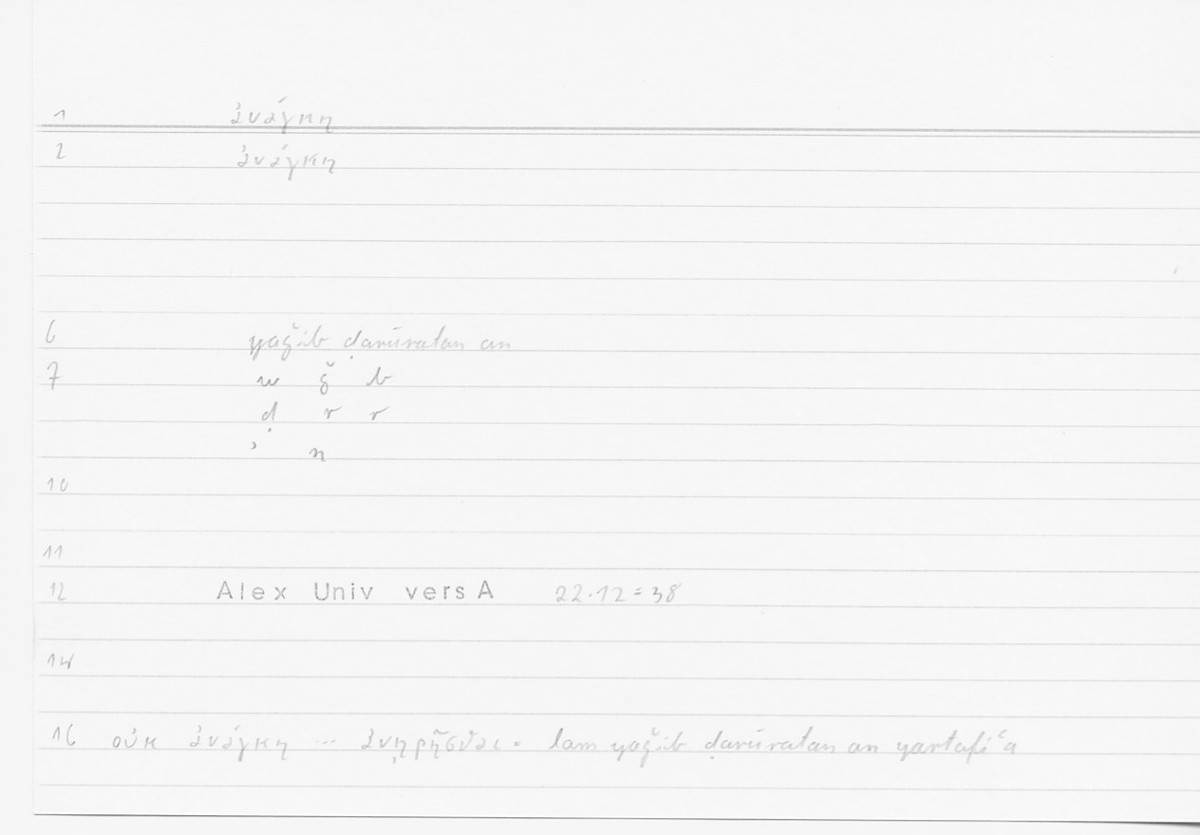 1 ἀνάγκη
2 ἀνάγκη
6 yaǧib ḍarūratan an
7 w ǧ b
ḍ r r
ʾ n
10
11
12 Alex Univ vers A 22.12 = 38
14
16 οὐκ ἀνάγκη ... ἀνῃρῆσθαι = lam yaǧib ḍarūratan an yartafiʿa